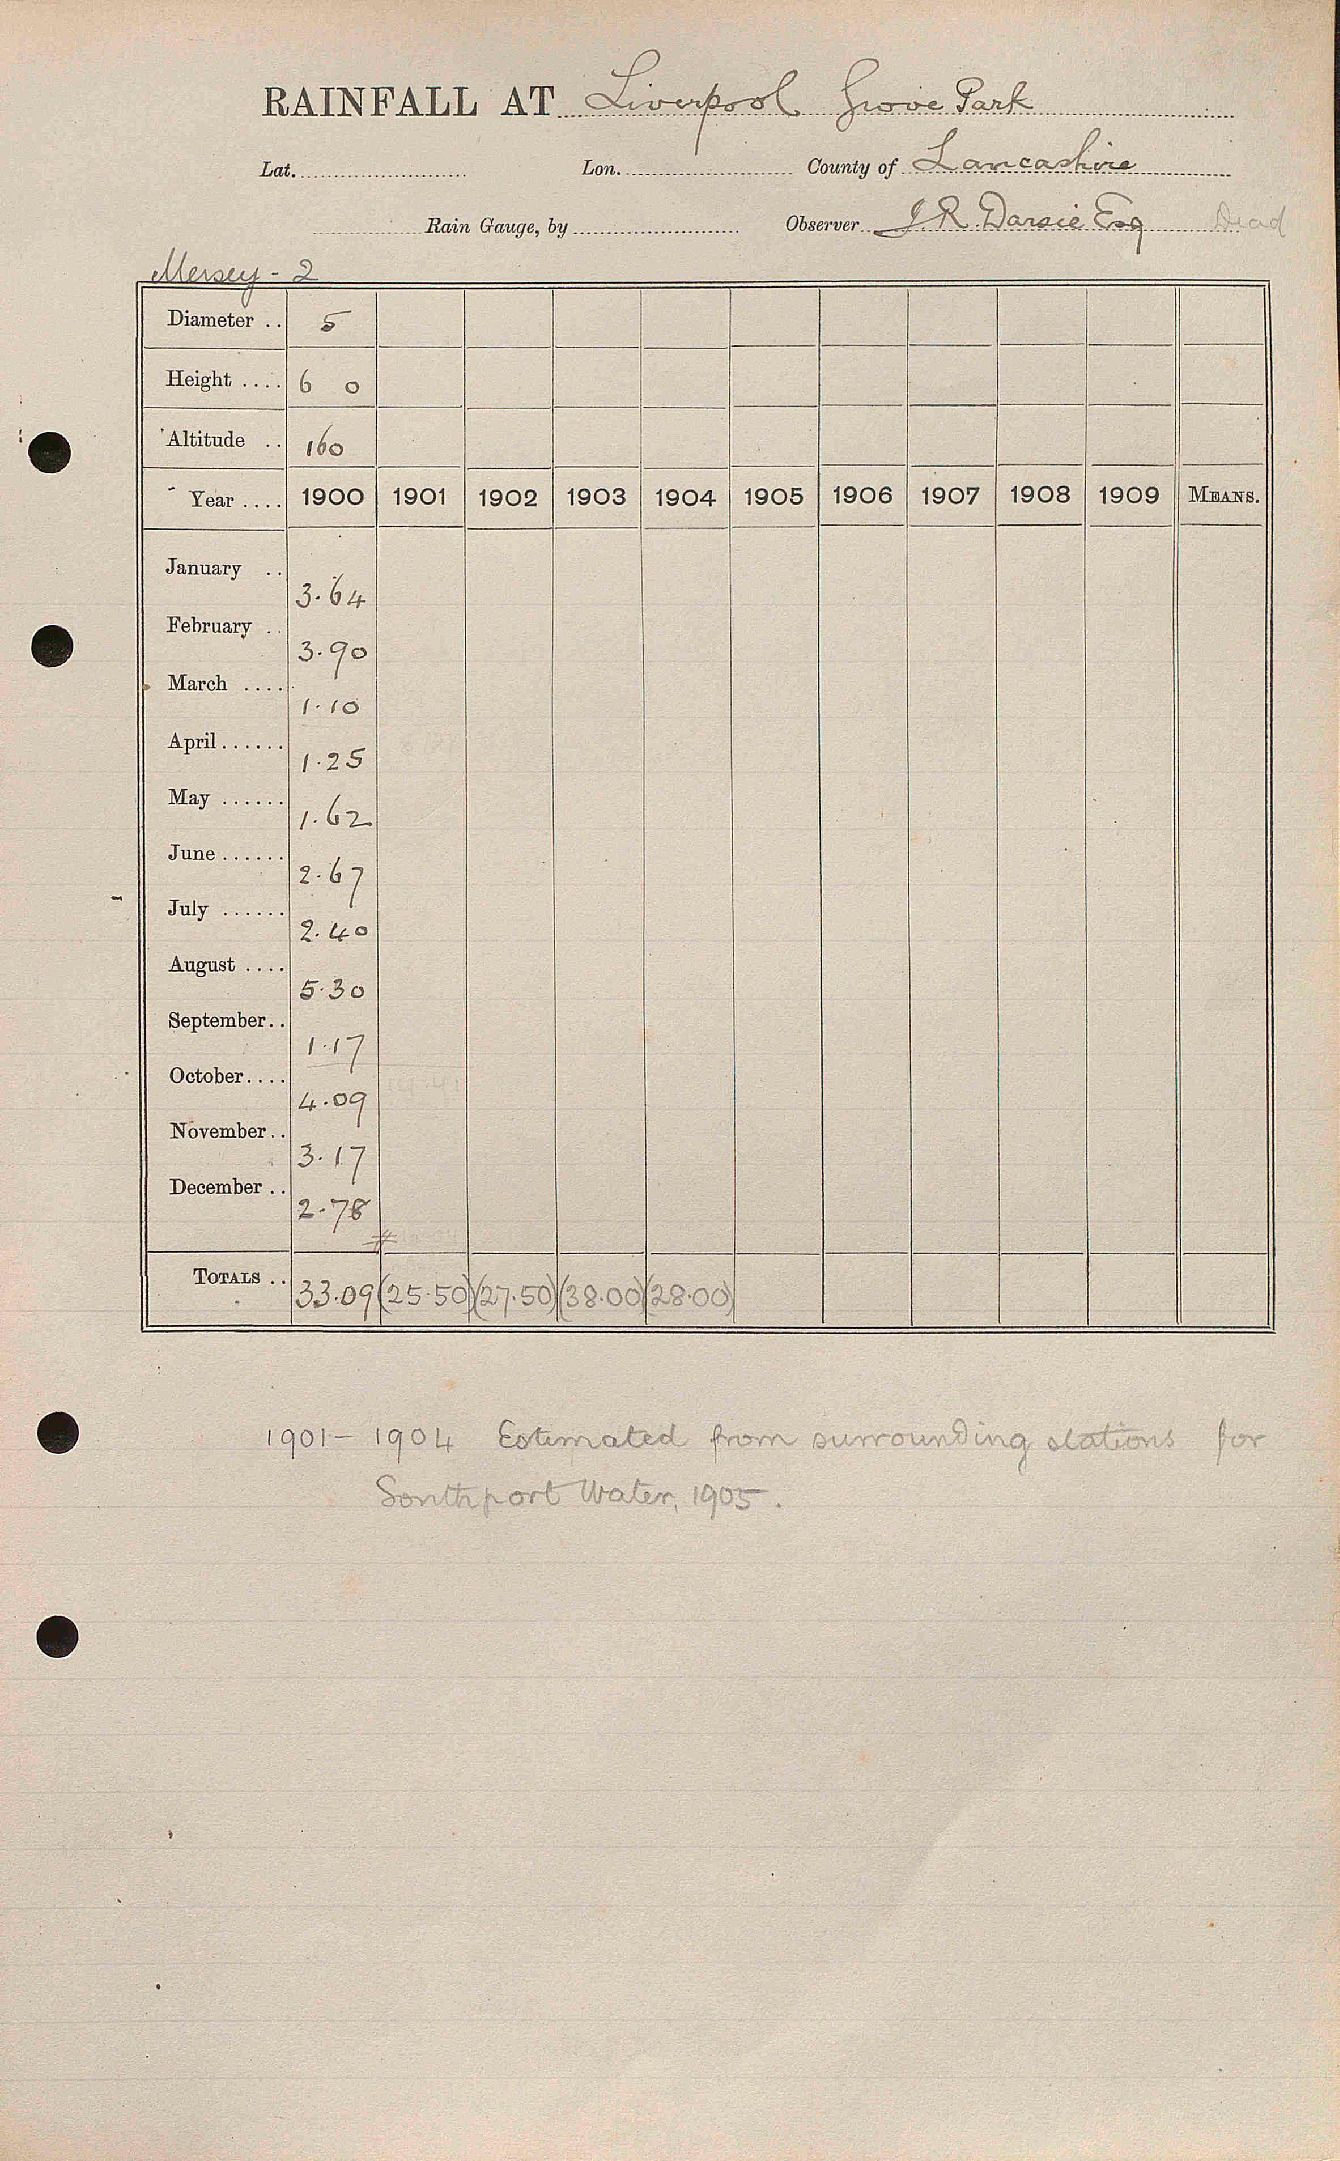 RAINFALL AT Liverpool Grove Park
Lat. Lon. County of Lancashire
Rain Gauge, by Observer J. R. Darsie Esq Dead
Mersey - 2
Diameter .. 5
Height .... 6 0
Altitude .. 160
Year .... 1900 1901 1902 1903 1904 1905 1906 1907 1908 1909 MEANS.
January .. 3.64
February .. 3.90
March .... 1.10
April ...... 1.25
May ...... 1.62
June ...... 2.67
July ...... 2.40
August .... 5.30
September.. 1.17
October.... 4.09
November.. 3.17
December .. 2.78
#
TOTALS .. 33.09 (25.50) (27.50) (38.00) (28.00)
1901 - 1904 Estimated from surrounding stations for
Southport Water, 1905.